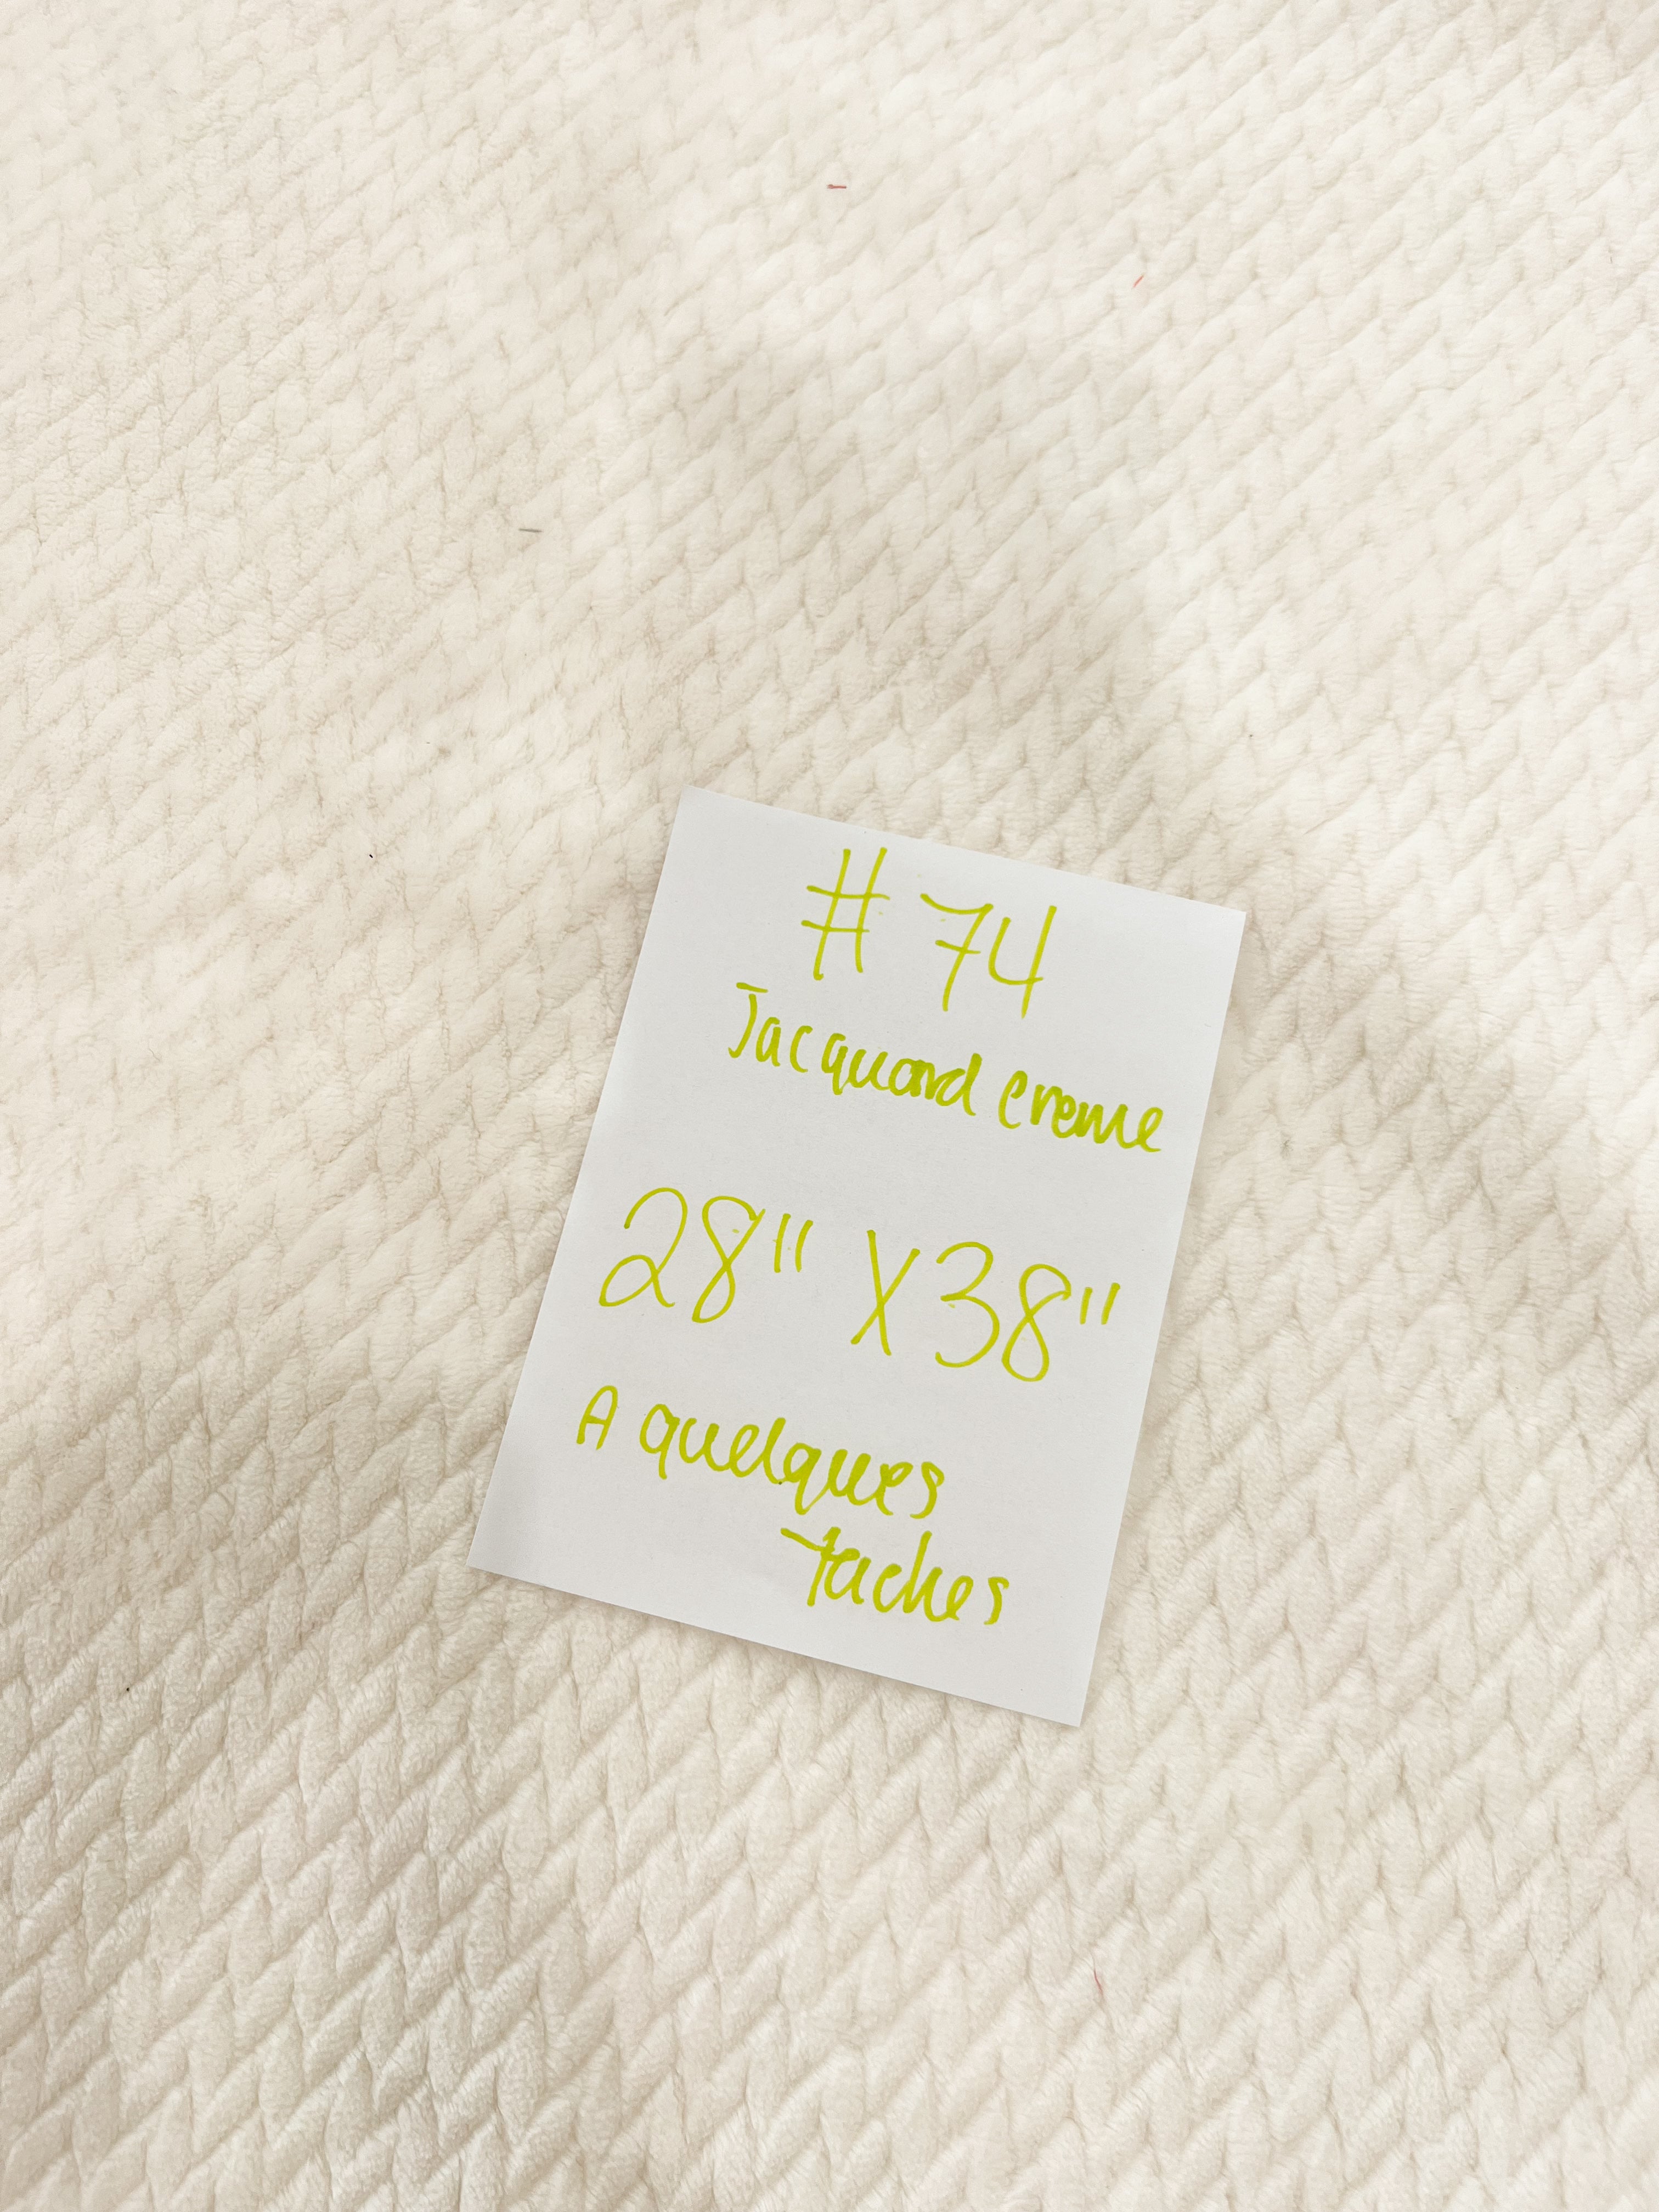 # 74
Jacquard creme
28" X 38"
A quelques
taches